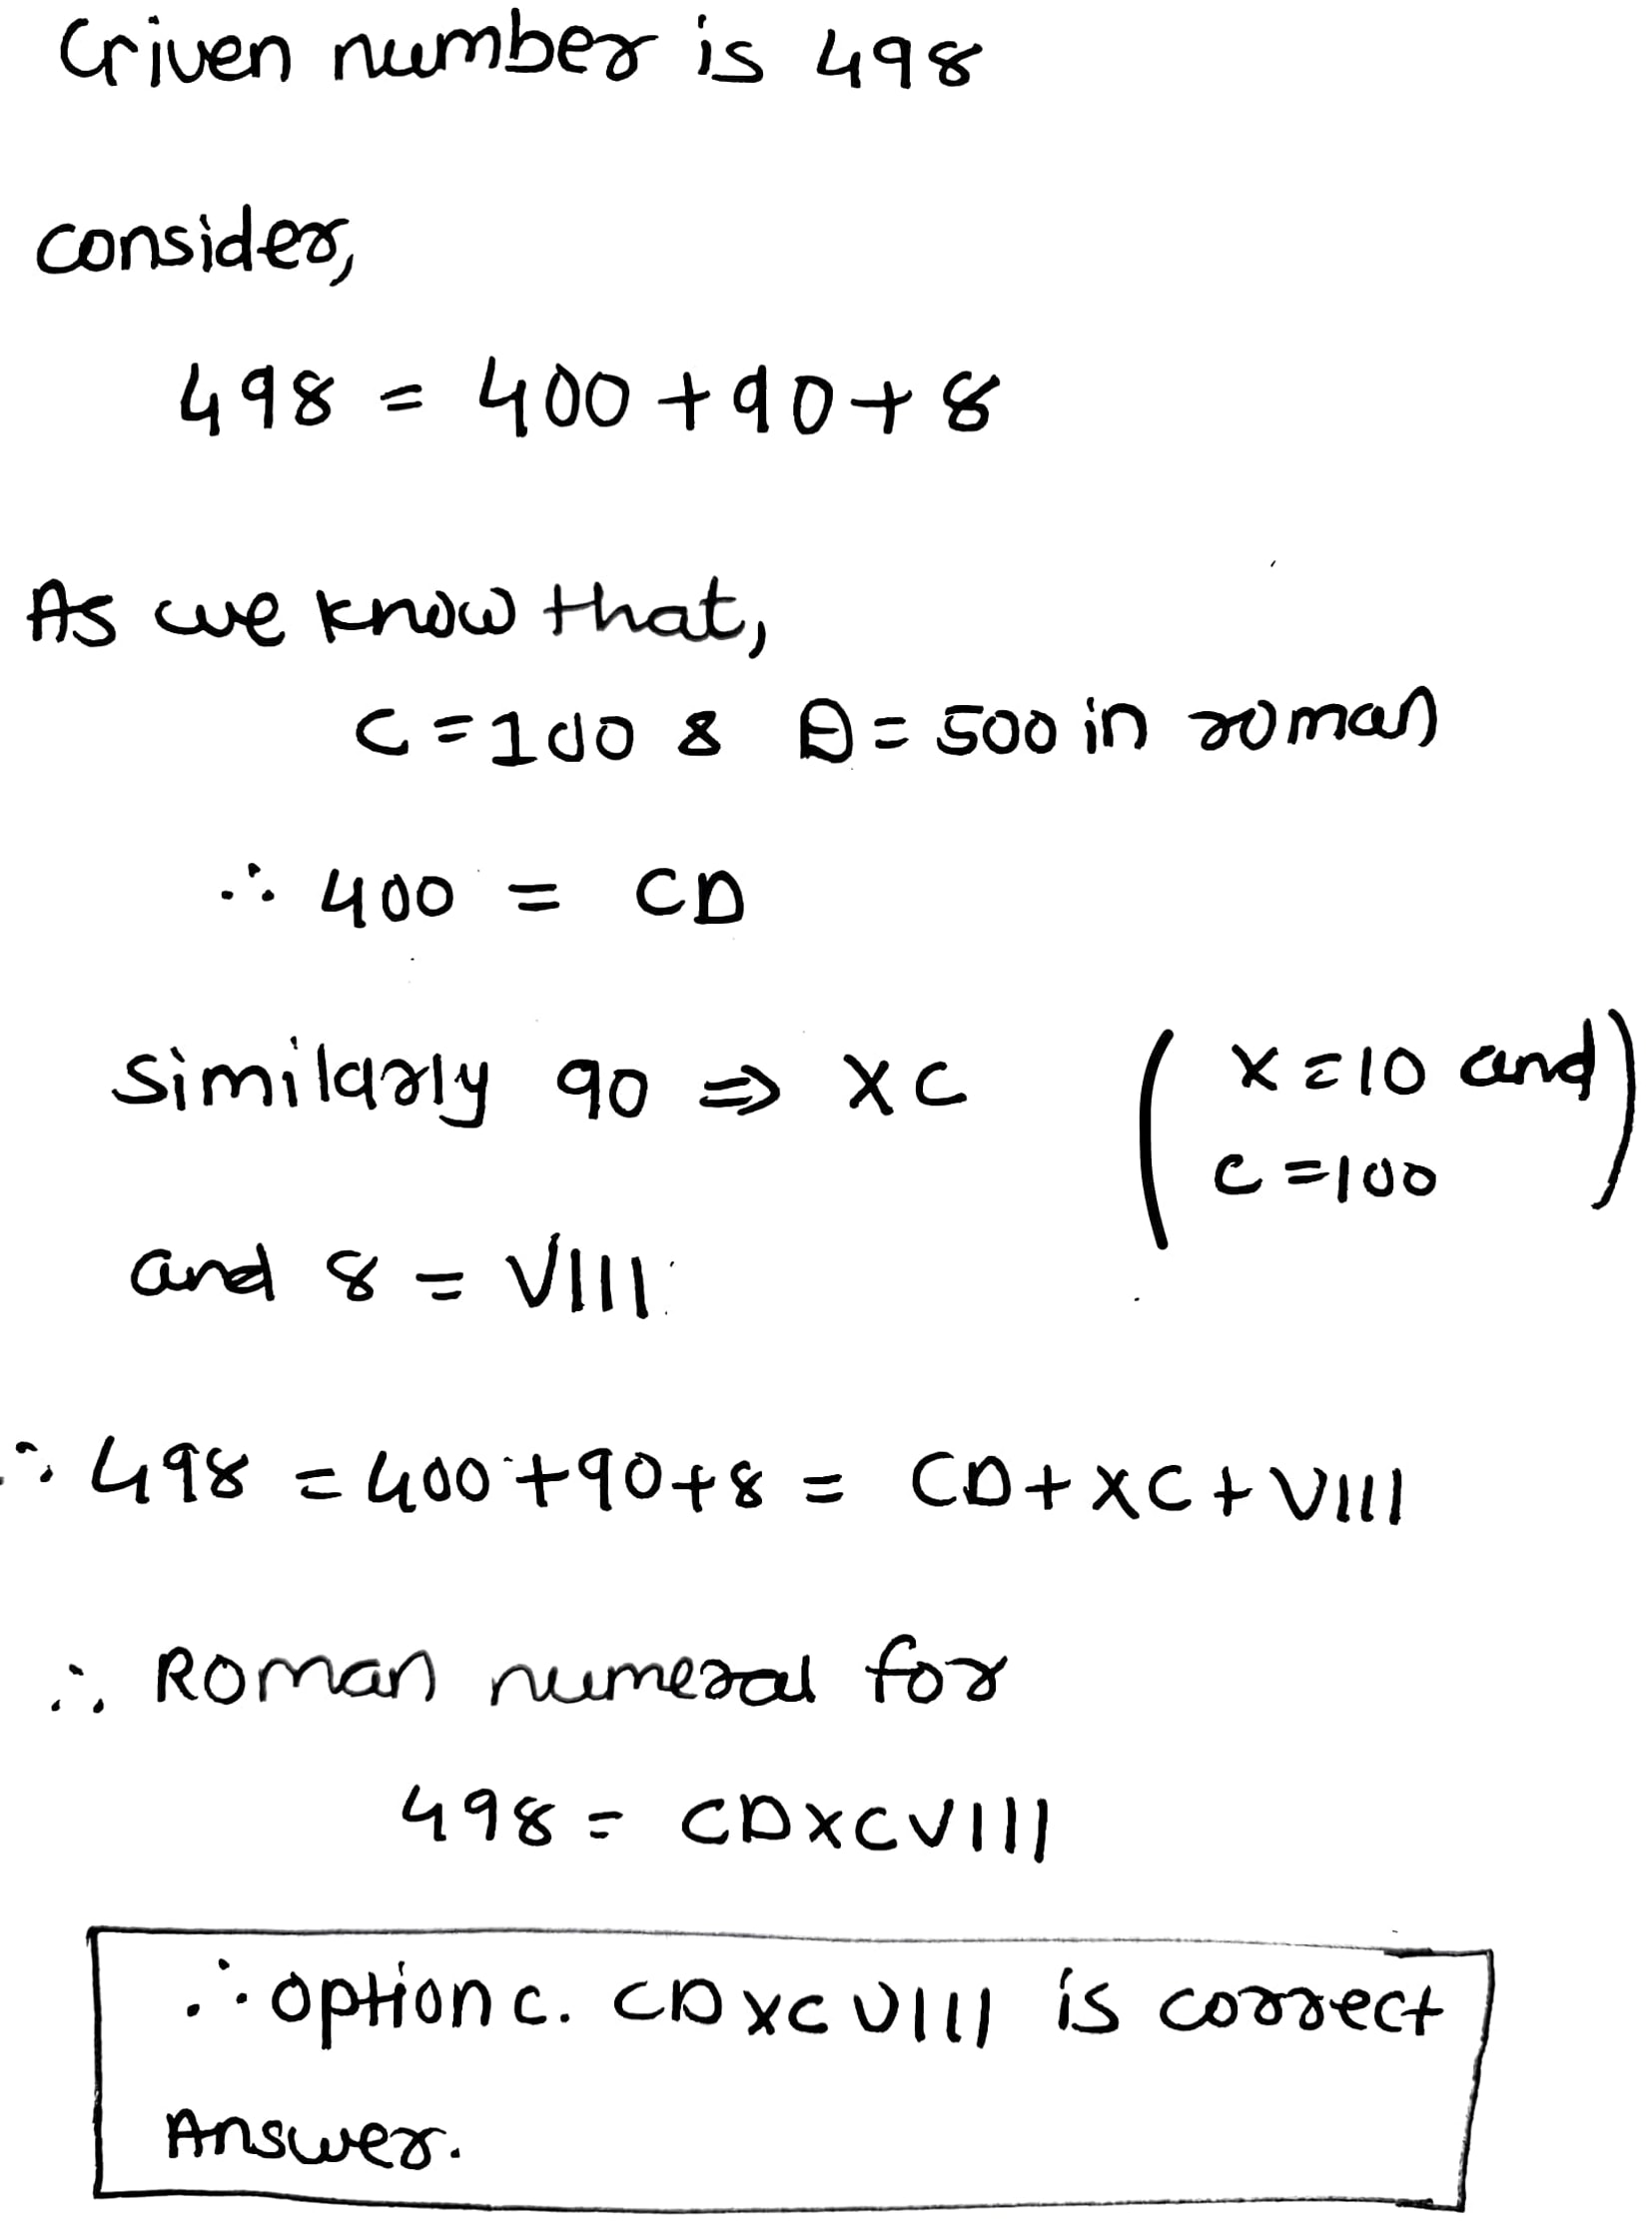 Given number is 498
consider,
498 = 400 + 90 + 8
As we know that,
C = 100 & D = 500 in roman
∴ 400 = CD
similarly 90 ⇒ XC
(X = 10 and
C = 100)
and 8 = VIII
∴ 498 = 400 + 90 + 8 = CD + XC + VIII
∴ Roman numeral for
498 = CDXCVIII
∴ option c. CDXCVIII is correct
Answer.